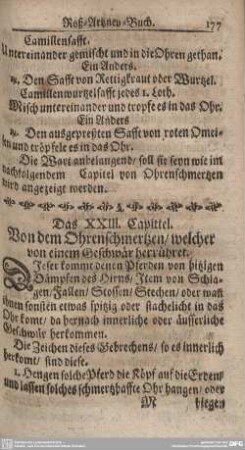 Roß-Artzney-Buch. 177
Camillensafft.
Untereinander gemischt und in die Ohren gethan.
Ein Anders.
℞. Den Safft von Rettigkraut oder Wurtzel.
Camillenwurtzelsafft jedes 1. Loth.
Misch untereinander und tropfe es in das Ohr.
Ein Anders
℞. Den ausgepreßten Safft von roten Omeis-
sen und tröpfele es in das Ohr.
Die Wart anbelangend/ soll sie seyn wie im
nachfolgendem Capitel von Ohrenschmertzen
wird angezeigt werden.
Das XXIII. Capittel.
Von dem Ohrenschmertzen/ welcher
von einem Geschwär herrühret.
Dieser komt denen Pferden von hitzigen
Dämpfen des Hirns/ Item von Schla-
gen/ Fallen/ Stossen/ Stechen/ oder wan
ihnen sonsten etwas spitzig oder stachelicht in das
Ohr komt/ da hernach innerliche oder äusserliche
Geschwär herkommen.
Die Zeichen dieses Gebrechens/ so es innerlich
herkomt/ sind diese.
1. Hengen solche Pferd die Köpf auf die Erden
und lassen solches schmertzhaffte Ohr hangen/ oder
M biegen